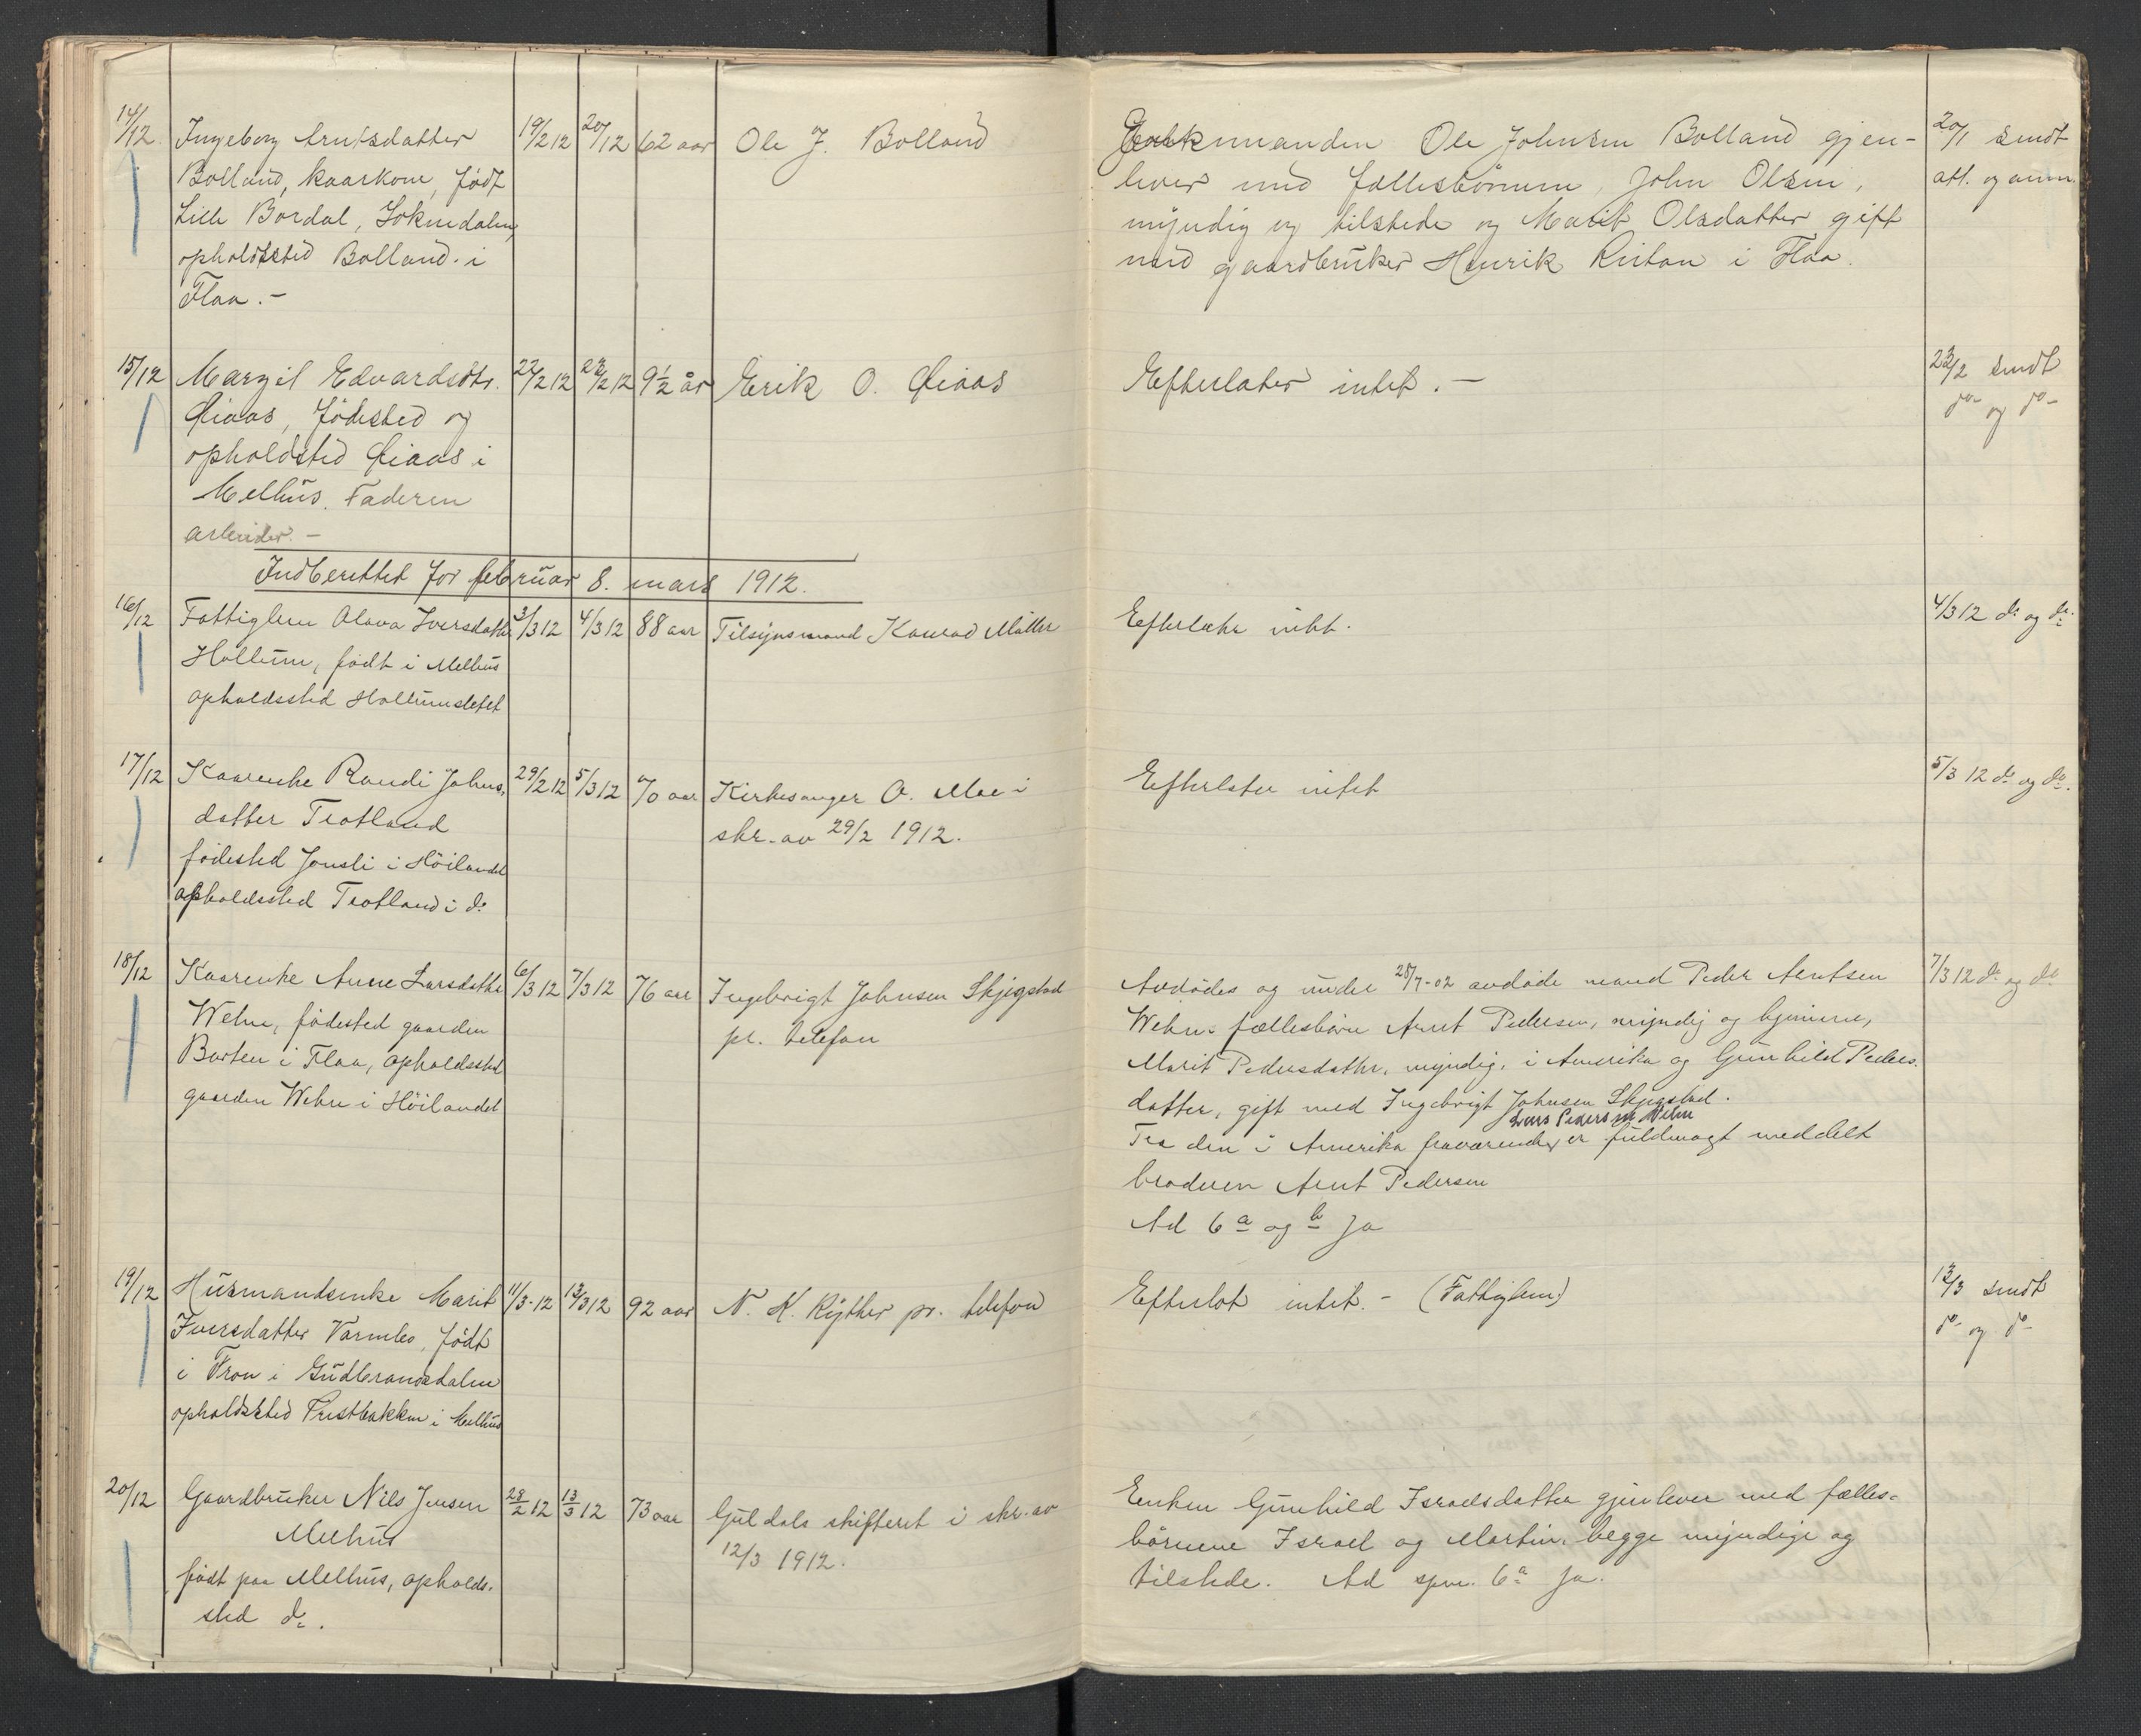 14/12. Ingeborg Arntsdatter 19/2 12 20/12 62 aar Ole J. Bolland
Bolland, kaarkone, født
Lille Bordal, Soknedalen,
opholdssted Bolland i
Flaa.-
Enkemanden Ole Johnsen Bolland gjen-
lever med fællesbörnene, John Olsen,
myndig og tilstede og Marit Olsdatter gift
med gaardbruker Henrik i Flaa.
20/1 sendt
att. og anm.
15/12 Margit Edvardsdtr. 22/2 12 23/2 12 9½ år Erik O. Øiaas
Øiaas, fødested og
opholdsted Øiaas i
Melhus. Faderen
arbeider.-
Efterlater intet.-
23/2 sendt
do- og do-
Indberettet for februar 8. mars 1912.
16/12 Fattiglem Olava Iversdatter 3/3 12 4/3 12 88 aar Tilsynsmand Konrad Møller
Hollum, født i Melhus
opholdssted Hollumsletet
Efterlater intet.
4/3 12 do og do.
17/12 Kaarenke Randi Johns- 29/2 12 5/3 12 70 aar Kirkesanger O. Moe i
datter Trotland skr. av 29/2 1912.
fødested Jonsli i Höilandet
opholdssted Trotland i do
Efterlater intet
5/3 12 do og do.
18/12 Kaarenke Anne Larsdatter 6/3 12 7/3 12 76 aar Ingebrigt Johnsen Skjegstad
Wehn, fødested gaarden pr. telefon
Borten i Flaa, opholdssted
gaarden Wehn i Höilandet
Avdödes og under 28/7-02 avdøde mand Peder Arntsen
Wehns fællesbörn Arnt Pedersen, myndig og hjemme,
Marit Pedersdatter, myndig, i Amerika og Gunhild Peders-
datter, gift med Ingebrigt Johnsen Skjegstad.
Lars Pedersen Wehn
Fra den i Amerika fraværende er fuldmagt meddelt
broderen Arnt Pedersen
Ad 6 a og b Ja
7/3 12 do og do
19/12 Husmandsenke Marit 11/3-12 12/3 12 92 aar N. K. Rytter pr. telefon
Iversdatter Varmbo, født
i Fron i Gudbrandsdalen
opholdssted Prestbakken i Melhus
Efterlot intet.- (Fattiglem)
12/3 sendt
do- og do-
20/12 Gaardbruker Nils Jensen 28/2 12 13/3 12 73 aar Guldals skifteret i skr. av
Melhus 12/3 1912.
født paa Melhus, opholds-
sted do.
Enken Gunhild Israelsdatter gjenlever med fælles-
börnene Israel og Martin, begge myndige og
tilstede. Ad spm. 6 a Ja.